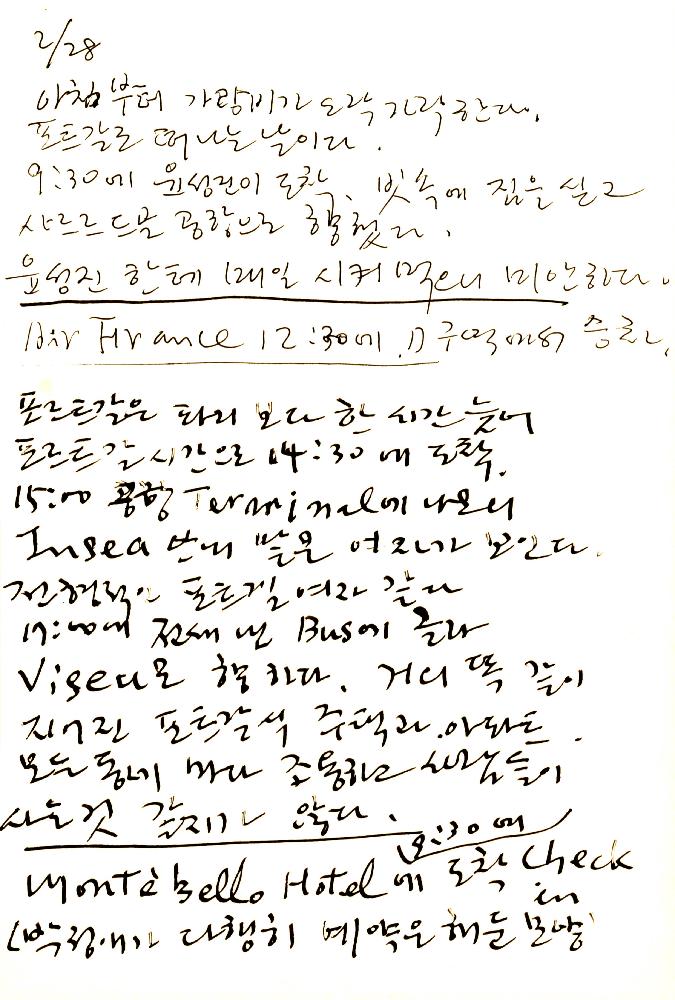 2/28
아침부터 가랑비가 오락가락한다.
포트갈로 떠나는 날이다.
9:30에 윤성진이 도착, 빗속에 짐을 싣고
샤르르드골 공항으로 향했다.
윤성진 한테 매일 시켜 먹으니 미안하다.
Air France 12:30에 구역에서 승로,
포르트갈은 파리 보다 한 시간 늦어
포르트갈 시간으로 14:30에 도착.
15:00 공항 Terminal에 나오니
Insea 여자가 보인다.
전형적인 포트갈 여자 같다
17:00에 전세 낸 Bus에 올라
Viseu로 향하다. 거의 똑 같이
지어진 포트갈식 주택과 아파트.
모든 동네 마다 조용하고 사람들이
사는것 같지가 않다.
8:30에
Montebello Hotel에 도착 Check
in
(박정애가 다행히 예약은 해둔 모양